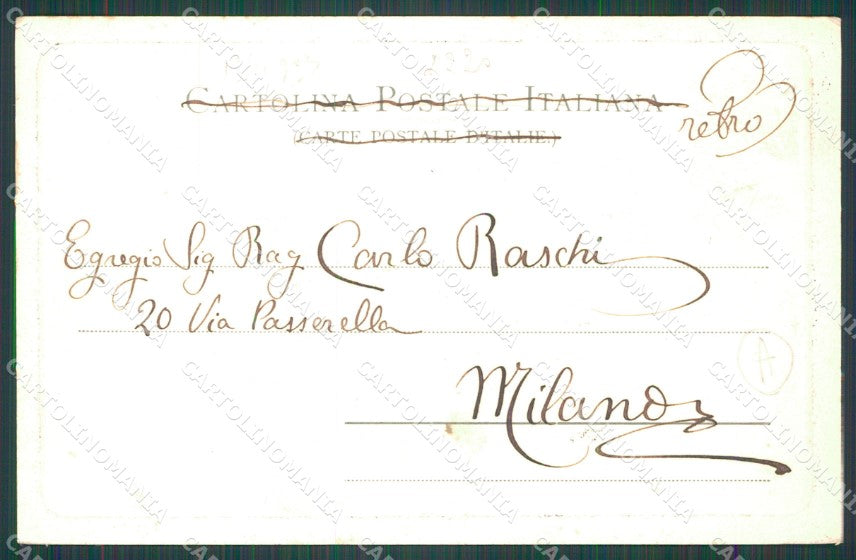 CARTOLINA POSTALE ITALIANA
(CARTE POSTALE D'ITALIE.)
retro
Egregio Sig Rag Carlo Raschi
20 Via Passerella
Milano
A
CARTOLINOMANIA